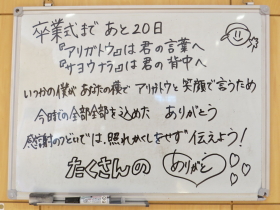 卒業式まで あと20日
『アリガトウ』は 君の言葉へ
『サヨウナラ』は 君の背中へ
いつかの僕が あなたの僕で アリガトウと 笑顔で言うため
今までの全部全部を込めた ありがとう
感謝のつどいでは、照れかくしをせず 伝えよう!
たくさんの ありがとう